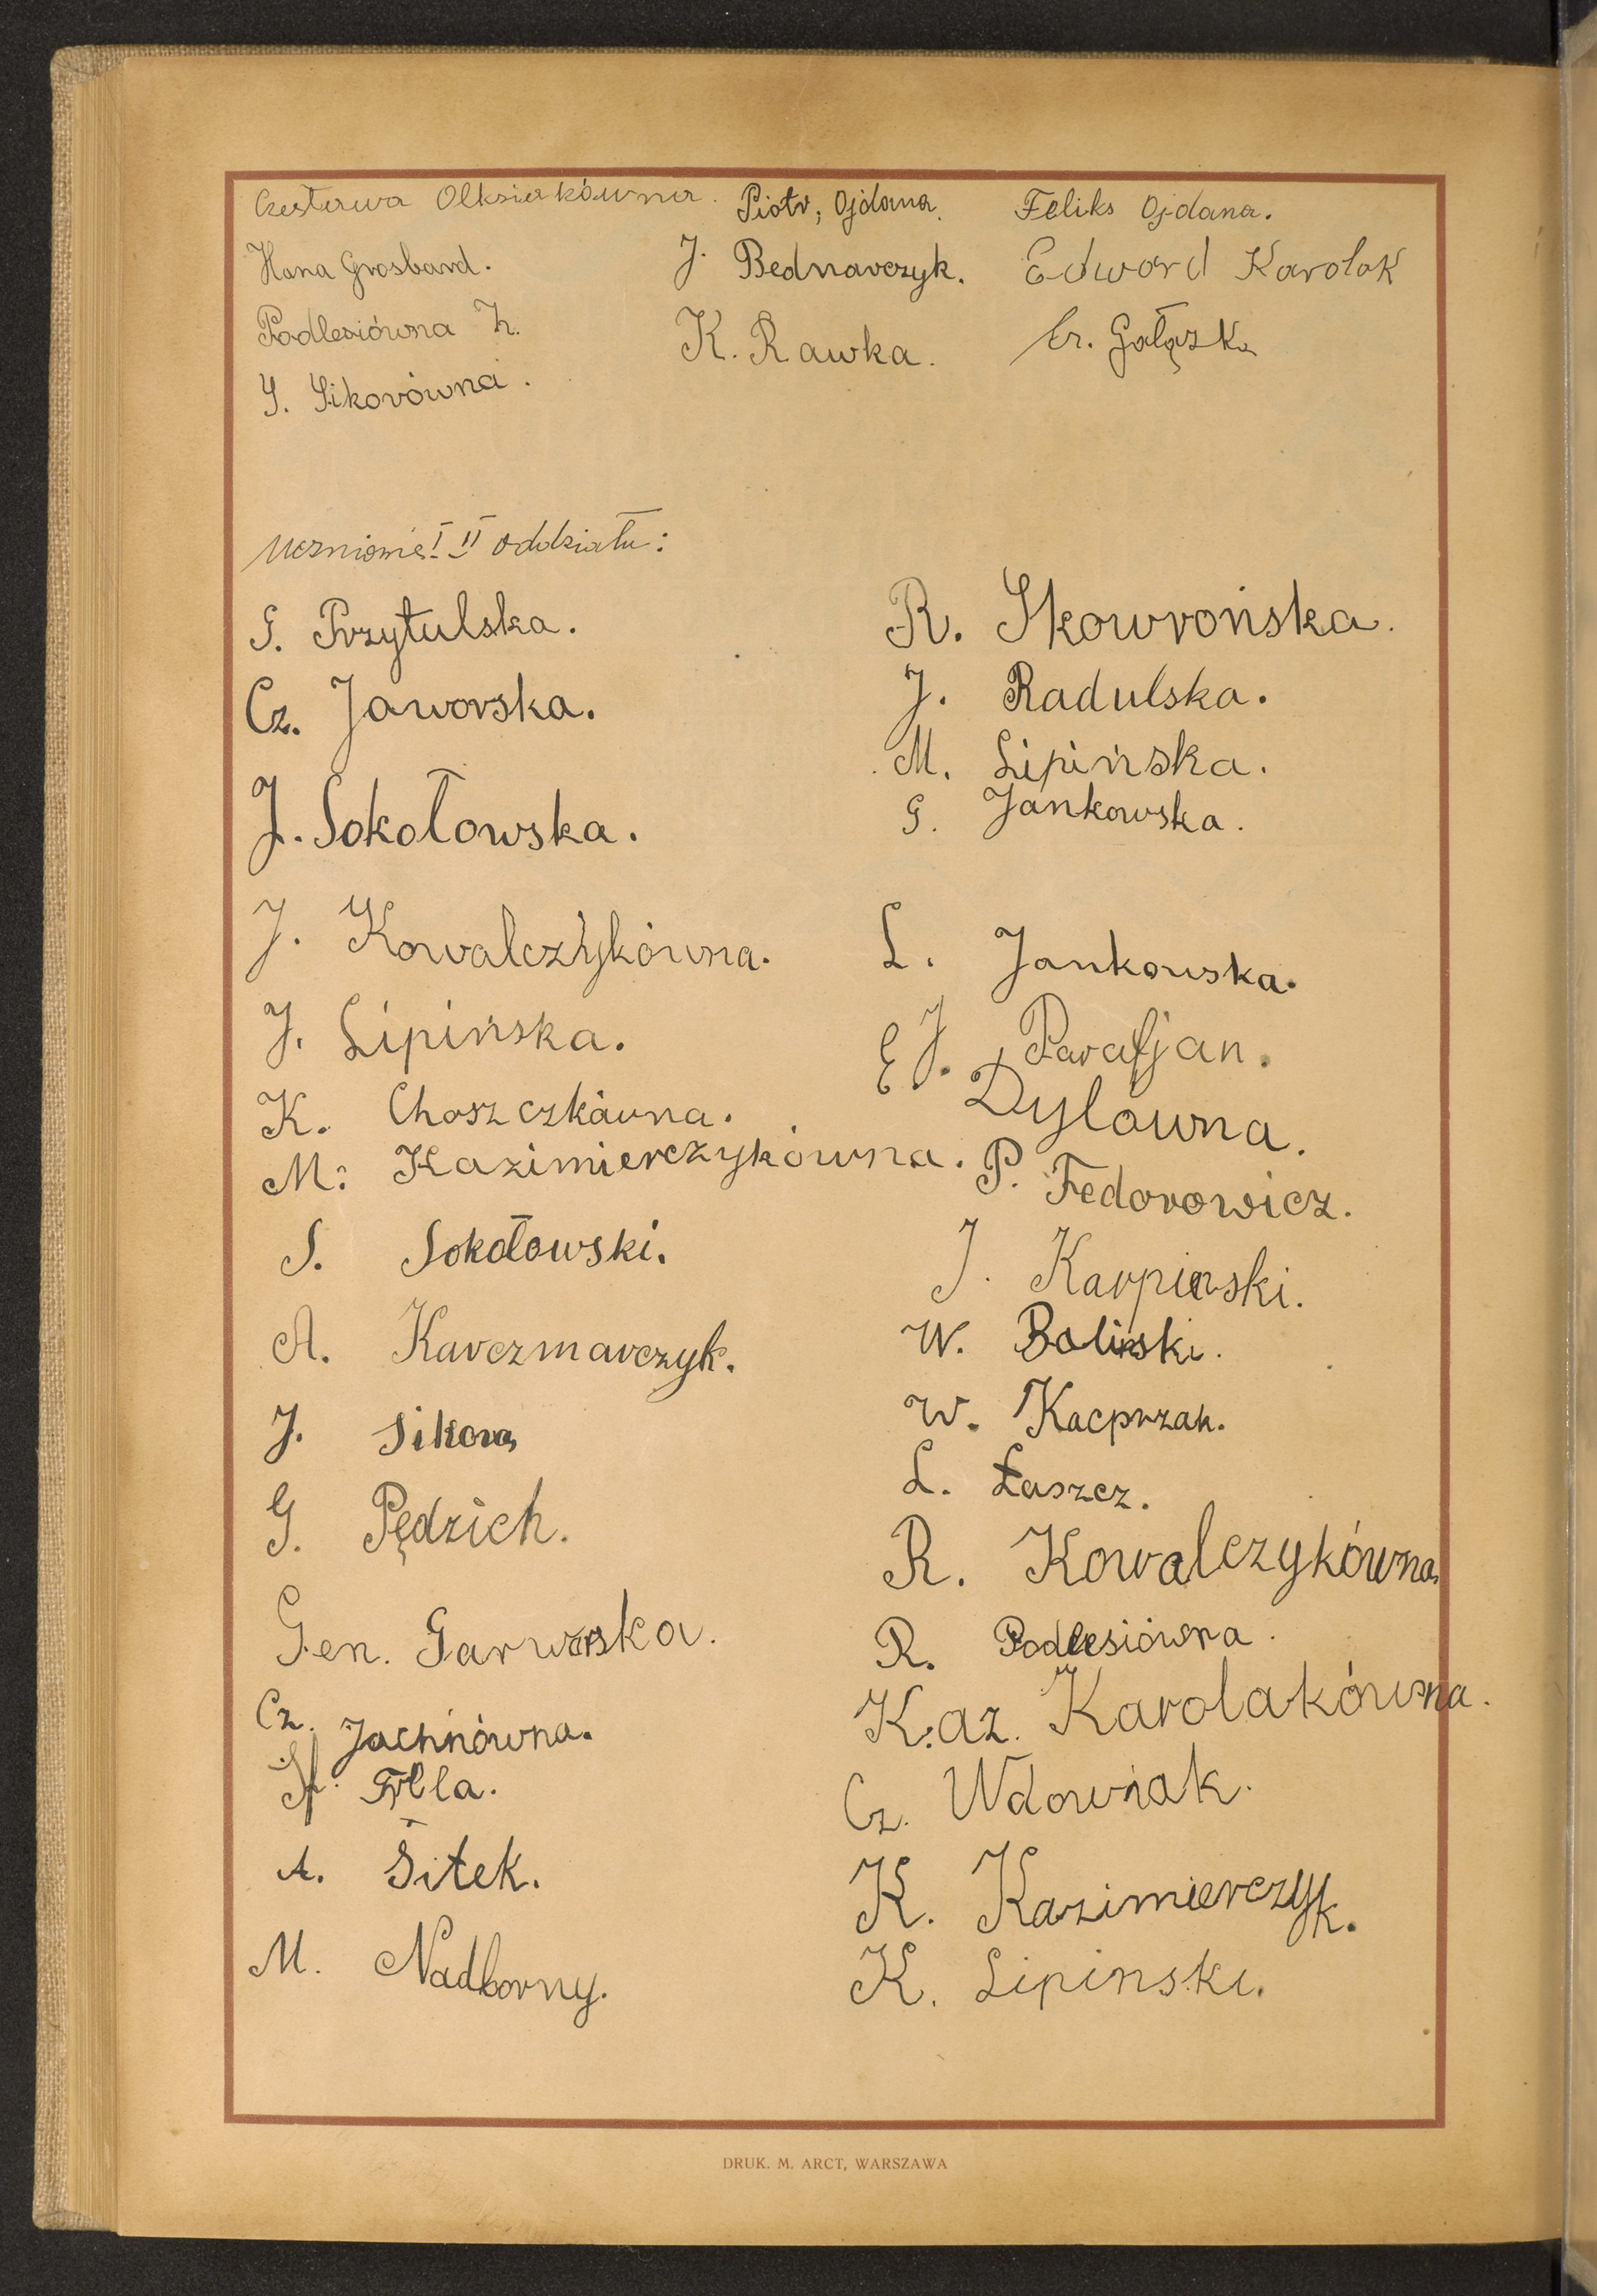 Czesława Olksiakówna. Piotr, Ojdana. Feliks Ojdana.
Hana Grosbard. J. Bednarczyk. Edward Karolak
Podlesiówna Z. K. Rawka. Cz. Gałązka
S. Sikorówna.
Uczniowie I i II oddziału:
G. Przytulska.
Cz. Jaworska.
J. Sokołowska.
J. Kowalczykówna.
J. Lipińska.
K. Choszczkówna.
M. Kazimierczykówna.
S. Sokołowski.
A. Karczmarczyk.
J. Sikora
G. Pędzich.
Gen. Garwarska.
Cz. Jachnówna.
Filla.
A. Sitek.
M. Nadborny.
R. Skowrońska.
J. Radulska.
M. Lipińska.
G. Jankowska.
L. Jankowska.
J. Parafjan.
E. Dylówna.
P. Fedorowicz.
J. Karpinski.
W. Bolinski.
W. Kacprzak.
L. Łaszcz.
R. Kowalczykówna
R. Podlesiówna.
Kaz. Karolakówna.
Cz. Wdowiak.
K. Kazimierczyk.
K. Lipinski.
DRUK. M. ARCT, WARSZAWA